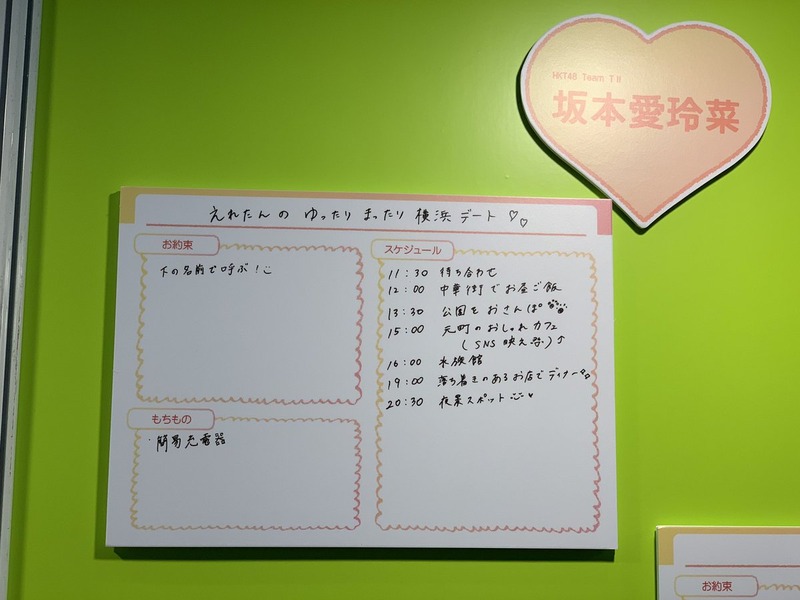 HKT48 Team TⅡ
坂本愛玲菜
えれたんの ゆったり まったり 横浜 デート ♡♡
お約束
下の名前で呼ぶ!
もちもの
・簡易充電器
スケジュール
11:30 待ち合わせ
12:00 中華街でお昼ご飯
13:30 公園をおさんぽ
15:00 元町のおしゃれカフェ
(SNS映え
16:00 水族館
19:00 落ち着きのあるお店でディナー
20:30 夜景スポット
お約束